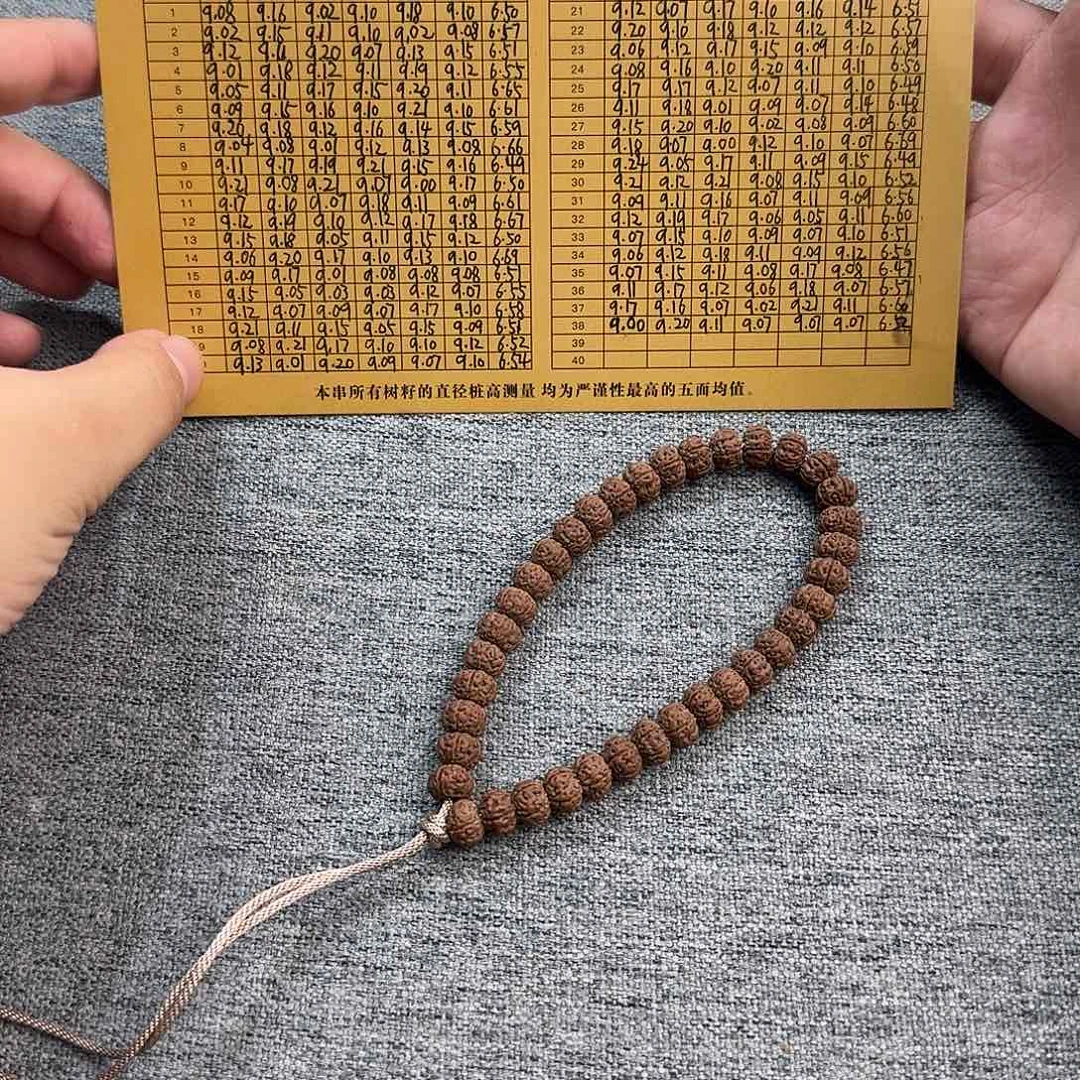 1 9.08 9.16 9.02 9.10 9.18 9.10 6.50
2 9.02 9.15 9.11 9.10 9.02 9.08 6.57
3 9.12 9.11 9.20 9.07 9.13 9.15 6.51
4 9.01 9.18 9.12 9.11 9.19 9.12 6.55
5 9.05 9.11 9.17 9.15 9.20 9.11 6.65
6 9.09 9.15 9.16 9.10 9.21 9.10 6.61
7 9.20 9.18 9.12 9.16 9.14 9.15 6.59
8 9.04 9.08 9.01 9.12 9.13 9.08 6.66
9 9.11 9.17 9.19 9.21 9.15 9.16 6.49
10 9.21 9.08 9.21 9.07 9.00 9.17 6.50
11 9.17 9.10 9.07 9.18 9.11 9.09 6.61
12 9.12 9.19 9.10 9.12 9.17 9.18 6.67
13 9.15 9.18 9.05 9.11 9.15 9.12 6.50
14 9.06 9.20 9.17 9.10 9.13 9.10 6.69
15 9.09 9.17 9.01 9.08 9.08 9.08 6.51
16 9.15 9.05 9.03 9.03 9.12 9.07 6.55
17 9.12 9.07 9.09 9.07 9.17 9.10 6.58
18 9.21 9.11 9.15 9.05 9.15 9.09 6.51
9 9.08 9.21 9.17 9.10 9.10 9.12 6.52
9.13 9.01 9.20 9.09 9.07 9.10 6.54
21 9.12 9.07 9.17 9.10 9.16 9.14 6.51
22 9.20 9.10 9.18 9.12 9.12 9.12 6.57
23 9.06 9.12 9.17 9.15 9.09 9.10 6.59
24 9.08 9.16 9.10 9.20 9.11 9.11 6.50
25 9.17 9.17 9.12 9.07 9.11 9.10 6.49
26 9.11 9.18 9.01 9.09 9.07 9.14 6.48
27 9.15 9.20 9.10 9.02 9.08 9.09 6.60
28 9.18 9.07 9.00 9.12 9.10 9.07 6.59
29 9.24 9.05 9.17 9.11 9.09 9.15 6.49
30 9.21 9.12 9.21 9.08 9.15 9.10 6.52
31 9.09 9.11 9.16 9.07 9.11 9.09 6.56
32 9.12 9.19 9.17 9.06 9.05 9.11 6.60
33 9.07 9.15 9.10 9.09 9.07 9.10 6.51
34 9.06 9.12 9.18 9.11 9.09 9.12 6.56
35 9.07 9.15 9.11 9.08 9.17 9.08 6.47
36 9.11 9.17 9.12 9.06 9.18 9.07 6.57
37 9.17 9.16 9.07 9.02 9.21 9.11 6.60
38 9.00 9.20 9.11 9.07 9.01 9.07 6.52
39
40
本串所有树籽的直径桩高测量 均为严谨性最高的五面均值。